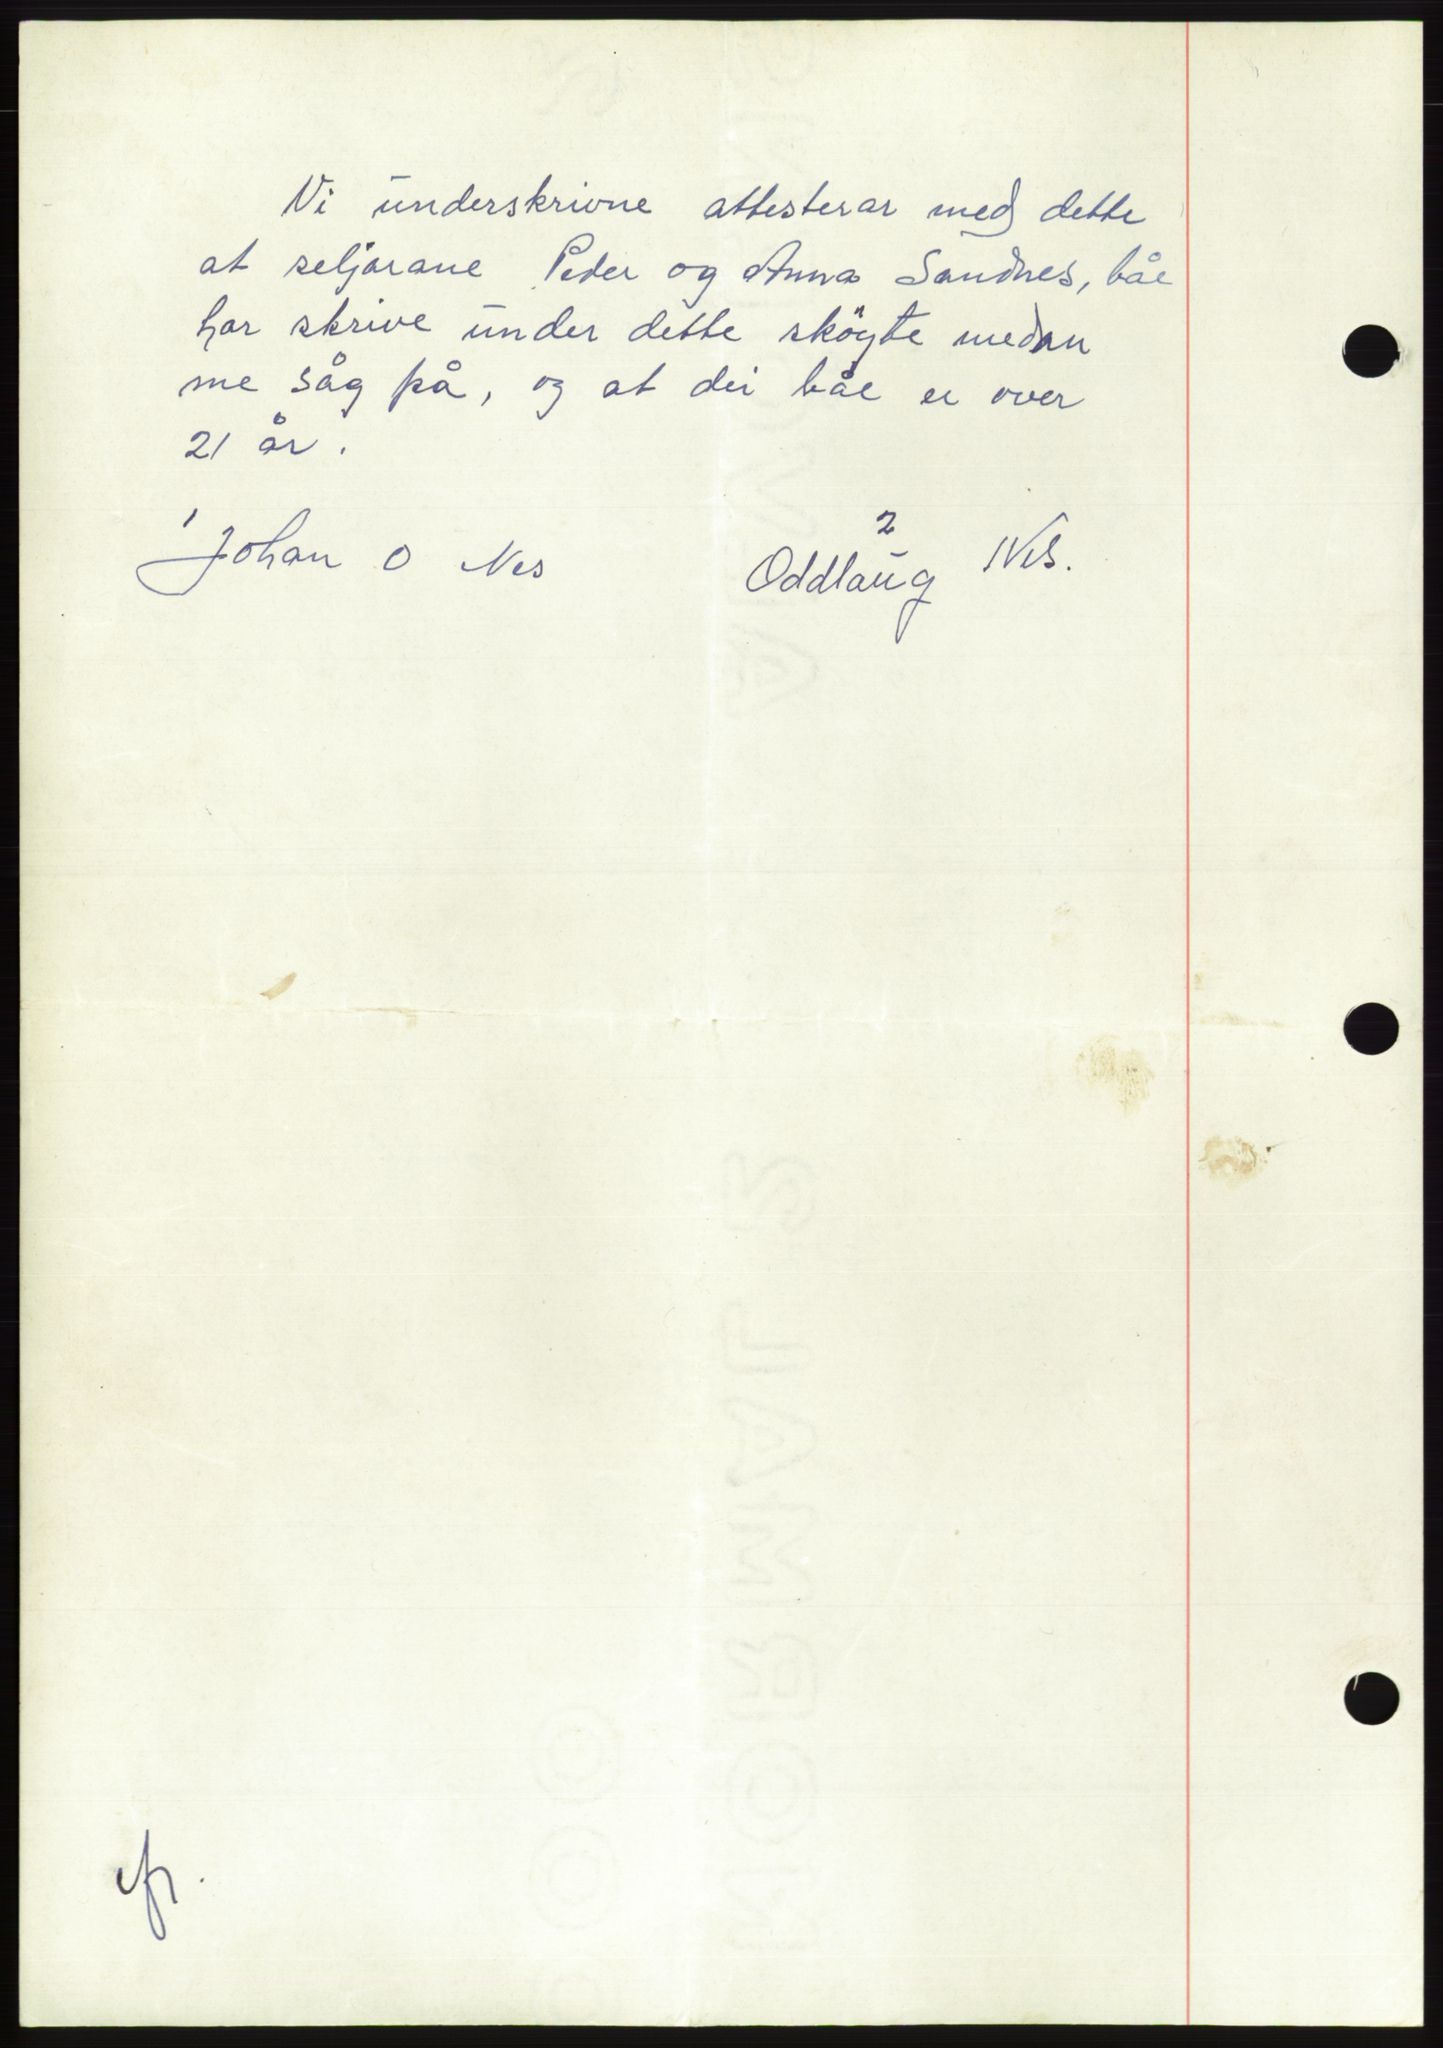 Vi underskrivne attesterar med dette
at seljarane Peder og Anna Sandnes, båe
har skrive under dette skøyte medan
me såg på, og at dei båe er over
21 år.
1 2
Johan O Nes Oddlaug Nes.
NORMAL 2